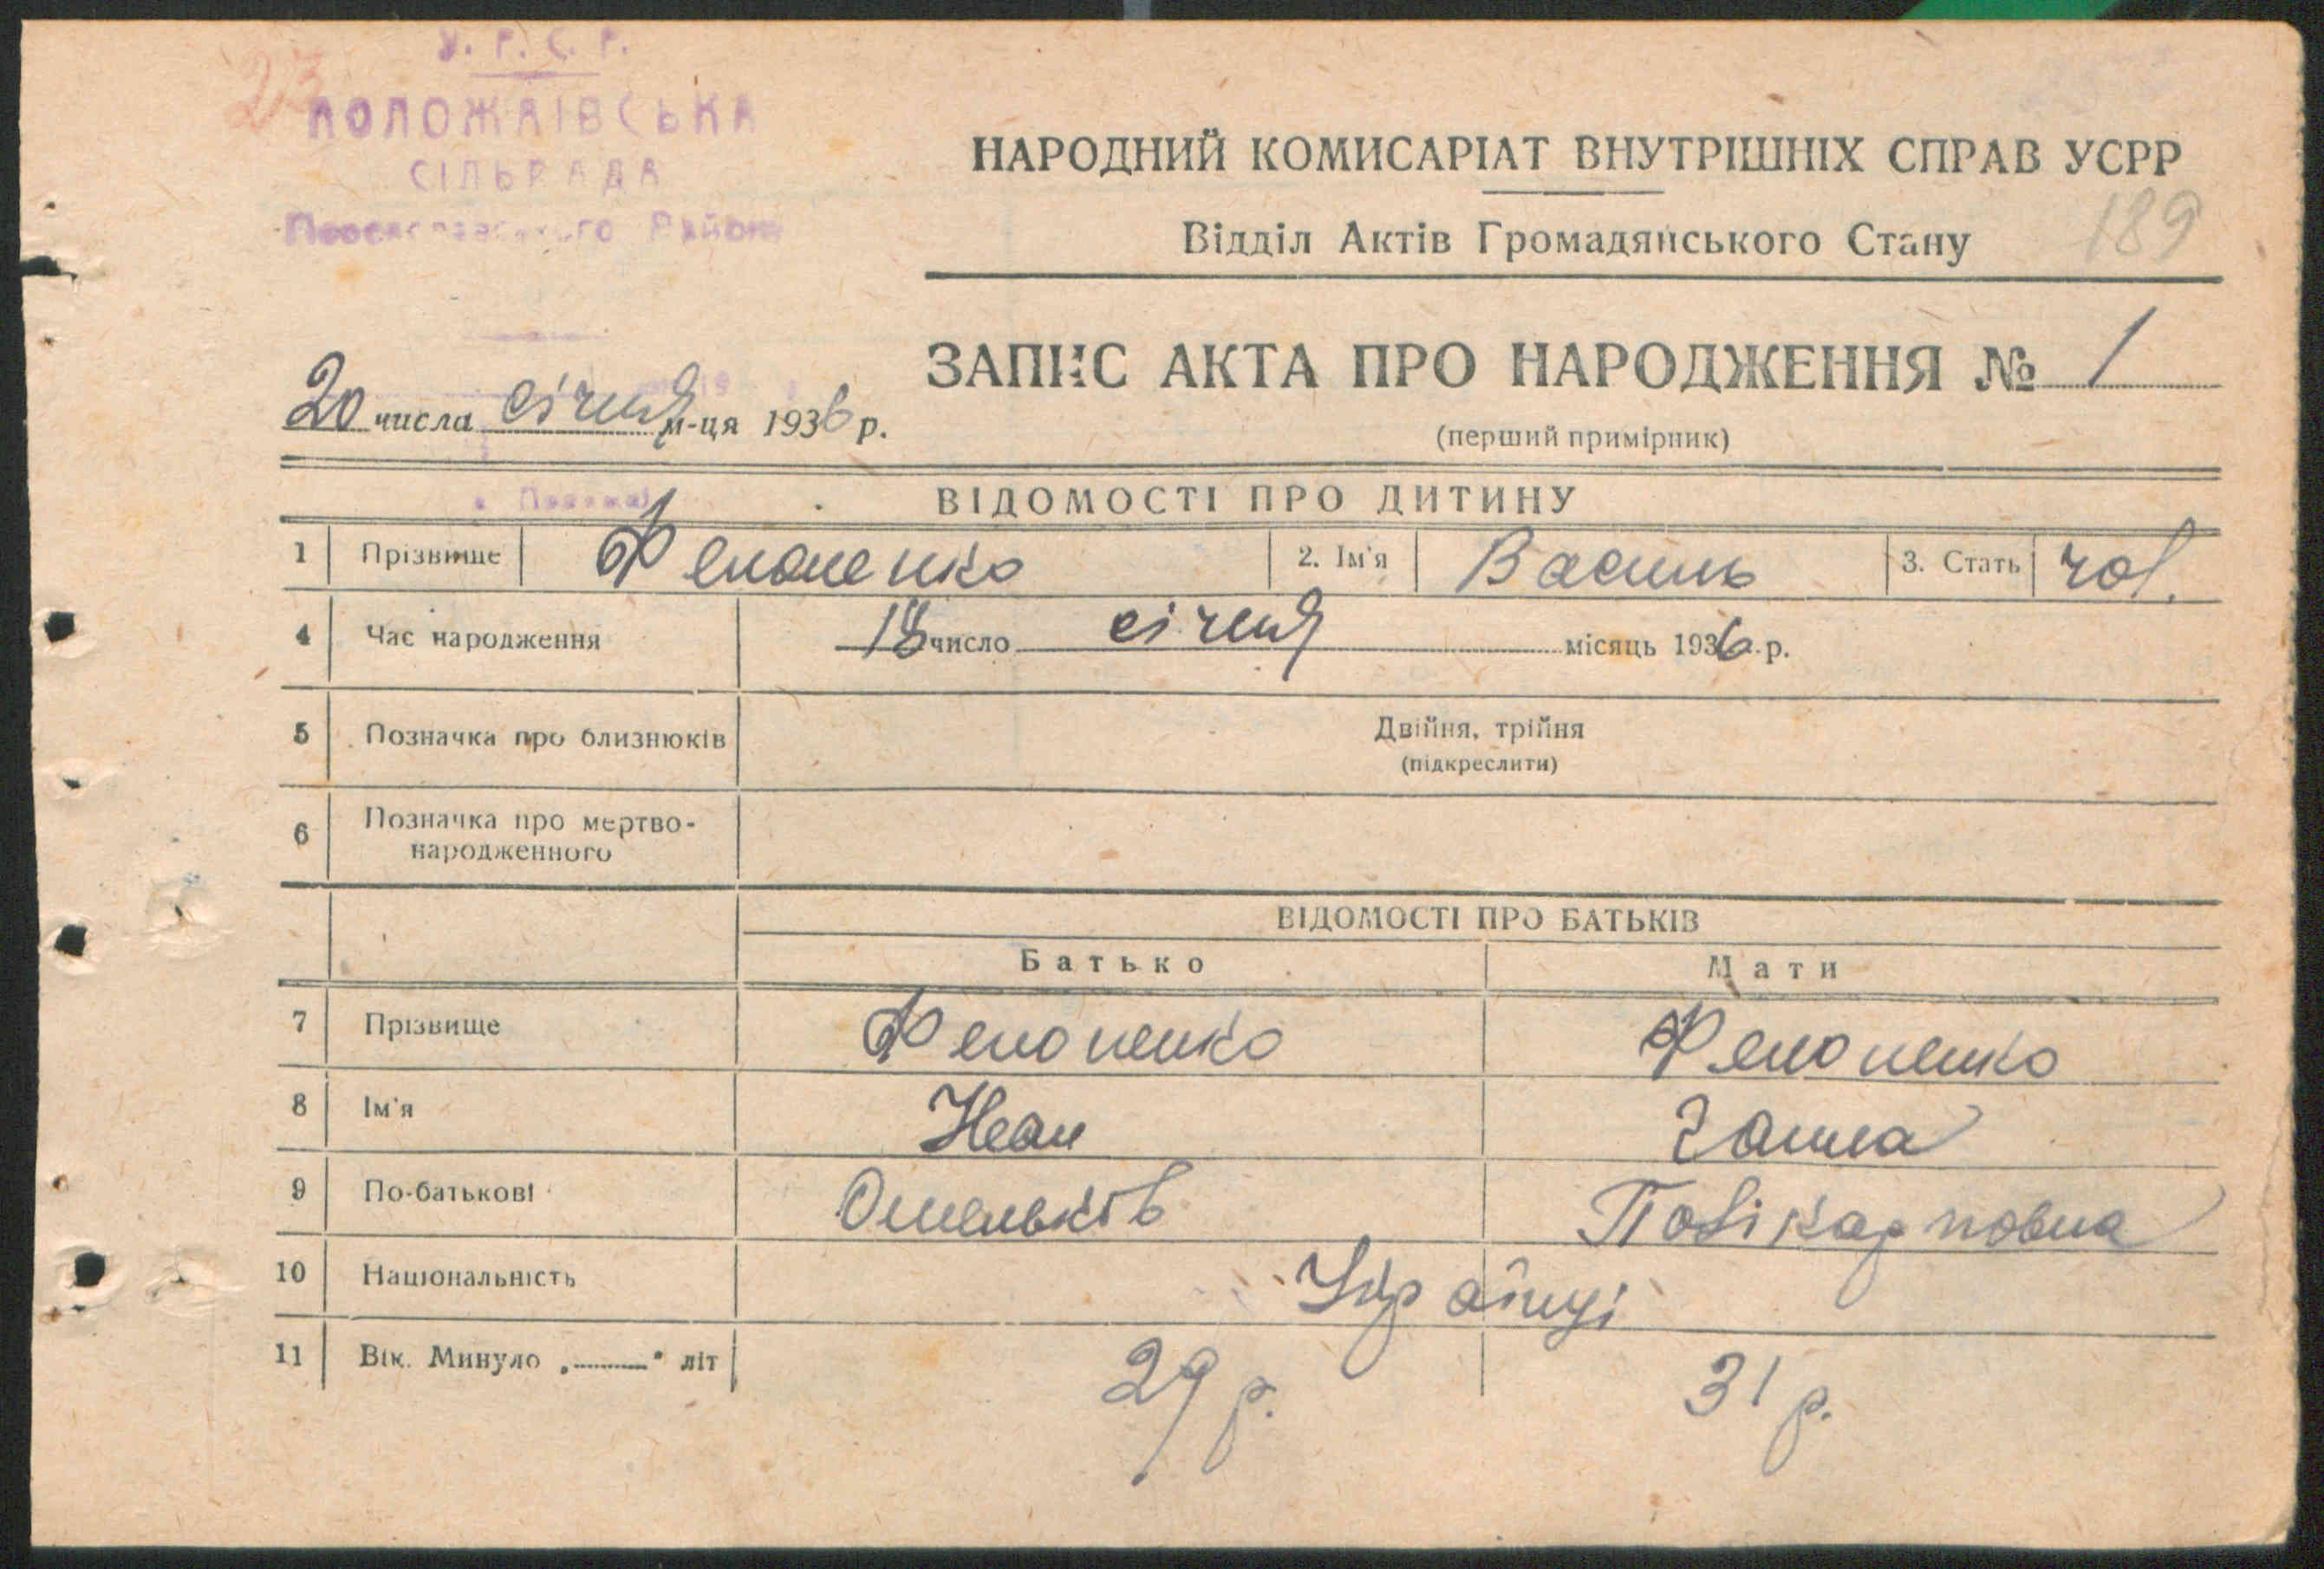 23
У.Р.С.Р.
ПОЛОЖАІВСЬКА
СІЛЬРАДА
Переяславського Району
НАРОДНИЙ КОМИСАРІАТ ВНУТРІШНІХ СПРАВ УСРР
Відділ Актів Громадянського Стану
189
ЗАПИС АКТА ПРО НАРОДЖЕННЯ № 1
20 числа січня м-ця 1936 р.
(перший примірник)
ВІДОМОСТІ ПРО ДИТИНУ
1 Прізвище Филоненко 2. Ім'я Василь 3. Стать чол.
4 Час народження 18 число січня місяць 1936 р.
5 Позначка про близнюків Двійня, трійня
(підкреслити)
6 Позначка про мертво-
народженного
ВІДОМОСТІ ПРО БАТЬКІВ
Батько Мати
7 Прізвище
8 Ім'я Иван Ганна
9 По-батькові Омельков Полікарповна
10 Національність Українці
11 Вік. Минуло „ " літ 29 р. 31 р.